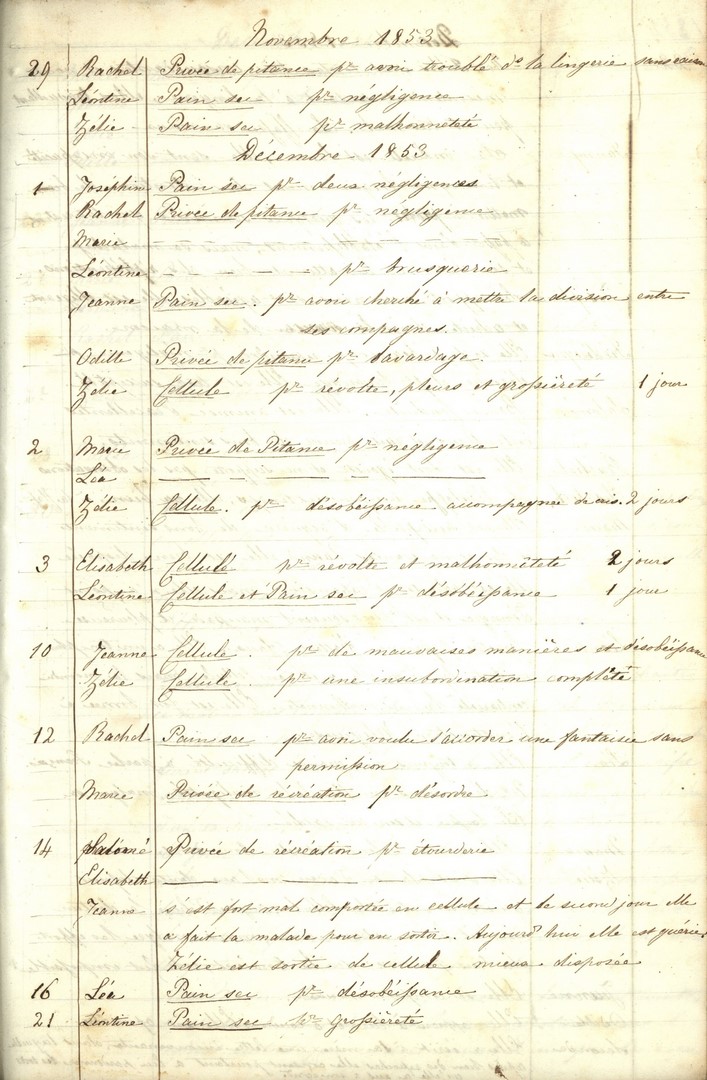 Novembre 1853
29 Rachel Privée de pitance pr avoir troublé ds la lingerie sans
Léontine Pain sec pr négligence
Zélie Pain sec pr malhonneteté
Décembre 1853
1 Joséphine Pain sec pr deux négligences
Rachel Privée de pitance pr négligence
Marie — — — — — — —
Léontine — — — — pr brusquerie
Jeanne Pain sec. pr avoir cherché à mettre la division entre
ses compagnes.
Odille Privée de pitance pr bavardage.
Zélie Cellule pr révolte, pleurs et grossièreté 1 jour
2 Marie Privée de Pitance pr négligence
Léa — — — — —
Zélie Cellule. pr désobéissance accompagnée de cris. 2 jours
3 Elisabeth Cellule pr révolte et malhonnêteté 2 jours
Léontine Cellule et Pain sec pr désobéissance 1 jour
10 Jeanne Cellule. pr de mauvaises manières et désobéissance
Zélie Cellule. pr une insubordination complète
12 Rachel Pain sec pr avoir voulu s'accorder une fantaisie sans
permission
Marie Privée de récréation pr désordre
14 Salomé Privée de récréation pr étourderie
Elisabeth — — — —
Jeanne s'est fort mal comportée en cellule et le second jour elle
a fait la malade pour en sortir. Aujourd'hui elle est guérie
Zélie est sortie de cellule mieux disposée
16 Léa Pain sec pr désobéissance
21 Léontine Pain sec pr grossièreté